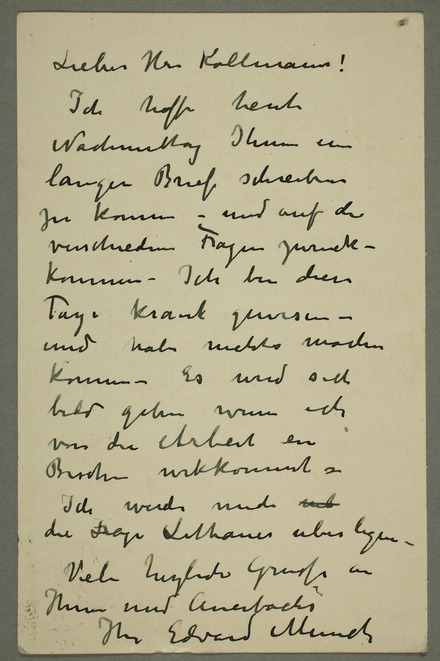 Lieber Herr Kollmann!
Ich hoffe heute
Nachmittag Ihnen ein
langer Brief schreiben
zu können – und auf die
verschiedene Fragen zurück-
kommen – Ich bin diese
Tage krank gewesen –
und habe nichts machen
können – Es wird sich
bald geben wenn ich
von die Arbeit ein
Bischen wekkommt –
Ich werde mich
die Sage Lithauer überlegen –
Viele herzliche Grüsse an
Ihnen und Auerbachs
Ihr Edvard Munch